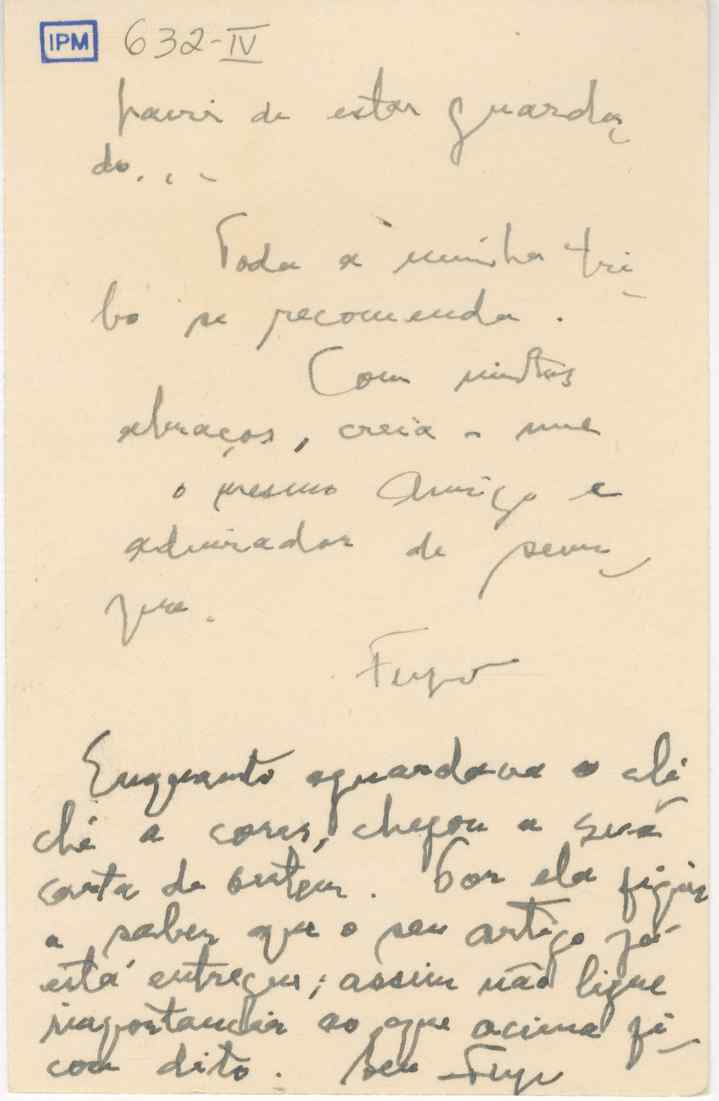 IPM 632-IV
de estar guarda-
do...
Toda a minha tri-
bo se recomenda.
Com muitos
abraços, creia-me
o mesmo Amigo e
admirador de sem-
pre.
Enquanto aguardava o cli-
chê a cores, chegou a sua
carta de ontem. Por ela fiquei
a saber que o seu artigo já
está entregue; assim não ligue
importancia ao que acima fi-
cou dito. Seu